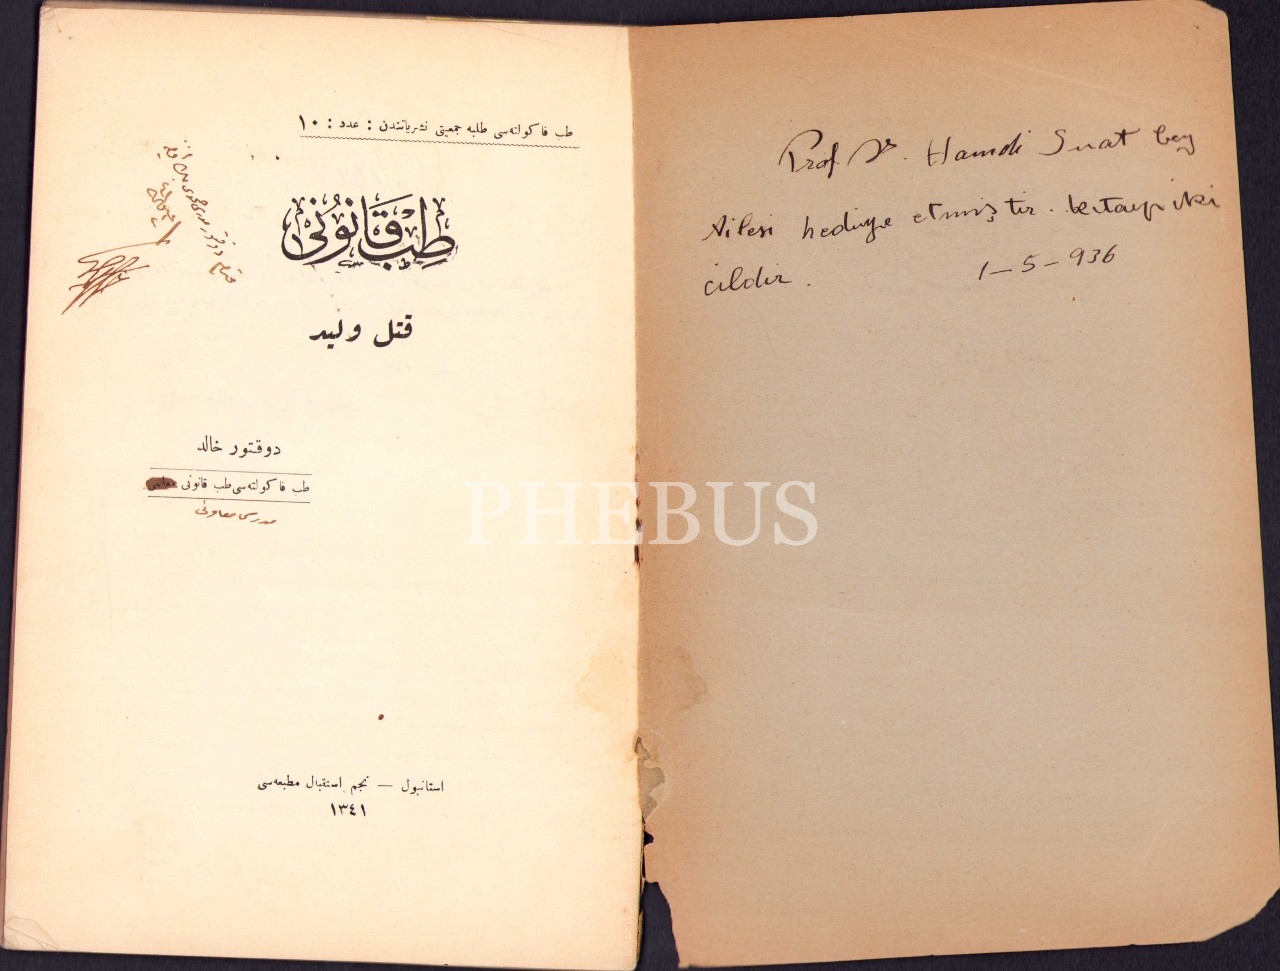 طب فاكولته‌سی طلبه جمعيتی نشرياتندن : عدد : ١٠
طب قانونی
قتل وليد
دوقتور خالد
طب فاكولته‌سی طب قانونی
مدرس معاونی
استانبول — نجم استقبال مطبعه‌سی
١٣٤١
Prof. Dr. Hamdi Suat bey
Ailesi hediye etmiştir. kitap iki
cildir.
1-5-936
PHEBUS